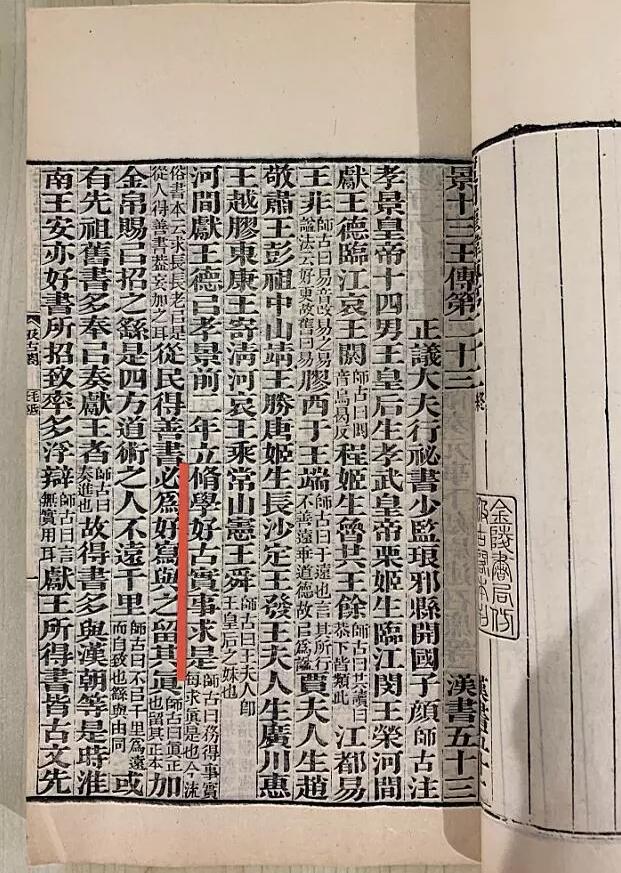 景十三王傳第二十三 漢書五十三
正議大夫行祕書少監琅邪縣開國子顏師古注
孝景皇帝十四男王皇后生孝武皇帝栗姬生臨江閔王榮河間
獻王德臨江哀王閼師古曰閼音烏曷反程姬生魯共王餘師古曰共讀曰恭下皆類此江都易
王非師古曰易音改易之易諡法云好更故舊曰易膠西于王端師古曰于遠也言其所行不善遠乖道德故㠯為諡賈夫人生趙
敬肅王彭祖中山靖王勝唐姬生長沙定王發王夫人生廣川惠
王越膠東康王寄清河哀王乘常山憲王舜師古曰王夫人卽王皇后之妹也
河間獻王德㠯孝景前二年立脩學好古實事求是師古曰務得事實每求真是也今流
俗書本云求長長老㠯是從人得善書蓋妄加之耳從民得善書必爲好寫與之留其眞師古曰眞正也留其正本加
金帛賜㠯招之繇是四方道術之人不遠千里師古曰不㠯千里爲遠而自致也繇與由同或
有先祖舊書多奉㠯奏獻王者師古曰奏進也故得書多與漢朝等是時淮
南王安亦好書所招致率多浮辯師古曰言無實用耳獻王所得書皆古文先
汲古閣
毛氏
金陵書局仿
汲古閣本刊